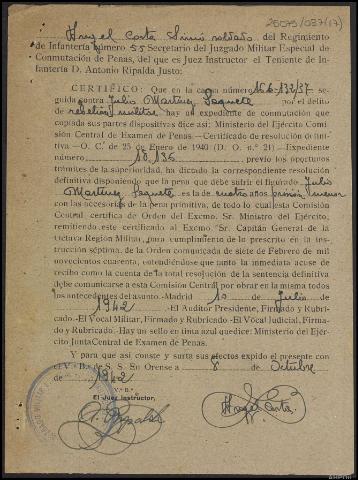 26075/037(17)
Angel Costa Simó soldado, del Regimiento
de Infantería número 55 Secretario del Juzgado Militar Especial de
Conmutación de Penas, del que es Juez Instructor el Teniente de In-
fantería D. Antonio Ripalda Justo:
CERTIFICO: Que en la causa número
seguida contra Julio Martinez por el delito
de rebelión militar hay un expediente de conmutación que
copiada sus partes dispositivas dice así: Ministerio del Ejército Comi-
sión Central de Examen de Penas.—Certificado de resolución defini-
tiva —O. C. de 25 de Enero de 1940 (D. O. n.° 21)—Expediente
número 18.136 previo los oportunos
trámites de la superioridad, ha dictado la correspondiente resolución
definitiva disponiendo que la pena que debe sufrir el figurado Julio
Martinez es la de cuatro años prisión menor
con las accesorias de la pena primitiva, de todo lo cual esta Comisión
Central certifica de Orden del Excmo. Sr. Ministro del Ejército,
remitiendo este certificado al Excmo Sr. Capitán General de la
Octava Región Militar, para cumplimiento de lo prescrito en la ins-
trucción séptima, de la Orden comunicada de siete de Febrero de mil
novecientos cuarenta, entendiéndose que tanto la inmediata acuse de
recibo como la cuenta de la total resolución de la sentencia definitiva
debe comunicarse a esta Comisión Central por obrar en la misma todos
los antecedentes del asunto.-Madrid 10 de Julio de
1942 .-El Auditor Presidente, Firmado y Rubri-
cado.-El Vocal Militar, Firmado y Rubricado.-El Vocal Judicial, Firma-
do y Rubricado.-Hay un sello en tinta azul que dice: Ministerio del Ejér-
cito Junta Central de Examen de Penas.
Y para que así conste y surta sus efectos expido el presente con
el V.° B.° de S. S. En Orense a 8 de Octubre
de 1942
V.° B.°
El Juez Instructor,
A. Ripalda
Angel Costa